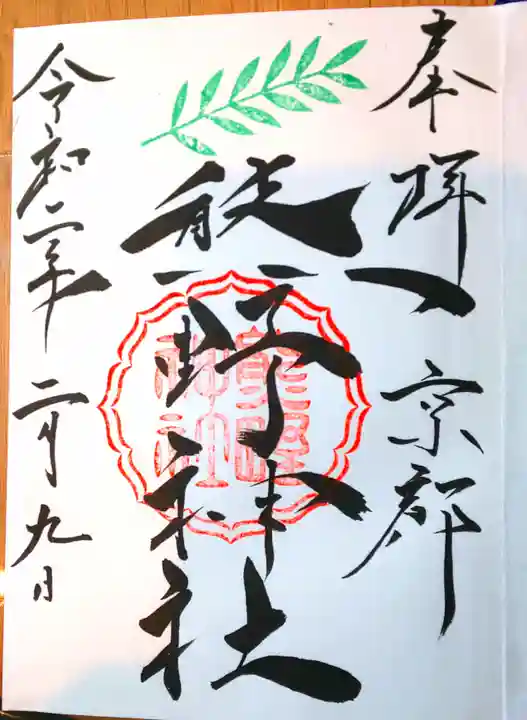 奉拝 京都
熊野神社
熊野神社
令和二年 二月九日